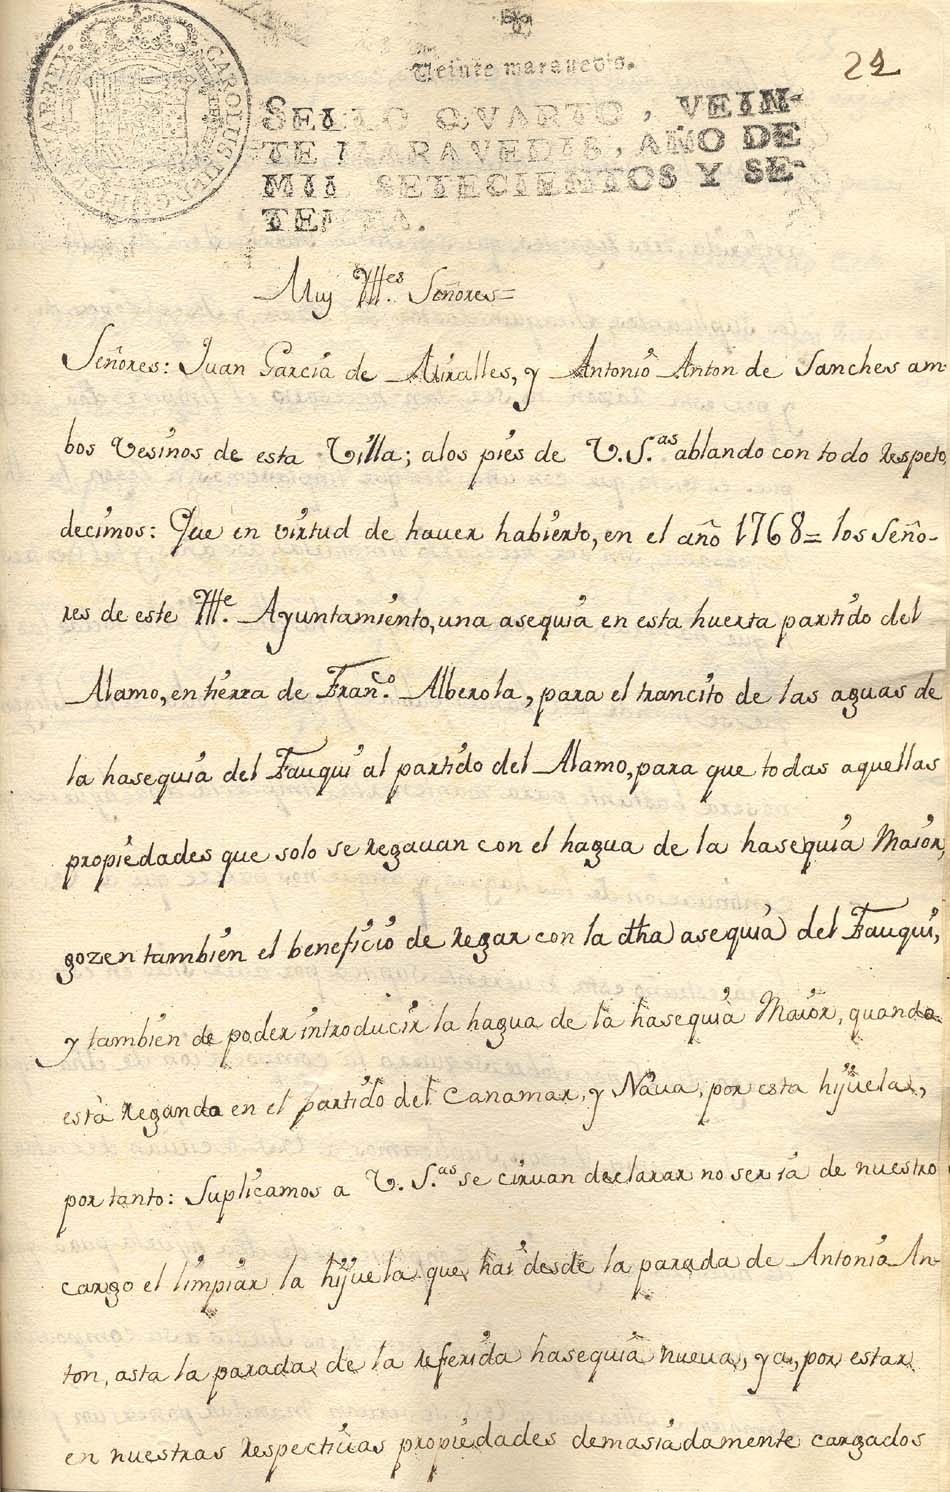 Veinte maravedis.
24
CAROLUS III D G HISP
ARREX
SELLO QVARTO, VEIN-
TE MARAVEDIS, AÑO DE
MIL SETECIENTOS Y SE-
TENTA.
Muy Yll.es Señores=
Señores: Juan Garcia de Miralles, y Antonio Anton de Sanches am-
bos Vesinos de esta Villa; alos pies de V.S.as ablando con todo Respeto,
decimos: Que en virtud de haver habierto, en el año 1768= los Seño-
res de este Ylle. Ayuntamiento, una asequia en esta huerta partido del
Alamo, en tierra de Fran.co Alberola, para el trancito de las aguas de
la hasequia del Fauqui al partido del Alamo, para que todas aquellas
propiedades que solo se regavan con el hagua de la hasequia Maior,
gozen tambien el beneficio de regar con la dha asequia del Fauqui,
y tambien de poder introducir la hagua de la hasequia Maior, quando
està regando en el partido del Canamar, y Nàva, por esta hijuela,
por tanto: Suplicamos a V.S.as se cirvan declarar no ser ia de nuestro
cargo el limpiar la hijuela que hai desde la parada de Antonia An-
ton, asta la parada de la referida hasequia nueva, ya, por estar
en nuestras respectivas propiedades demasiadamente cargados